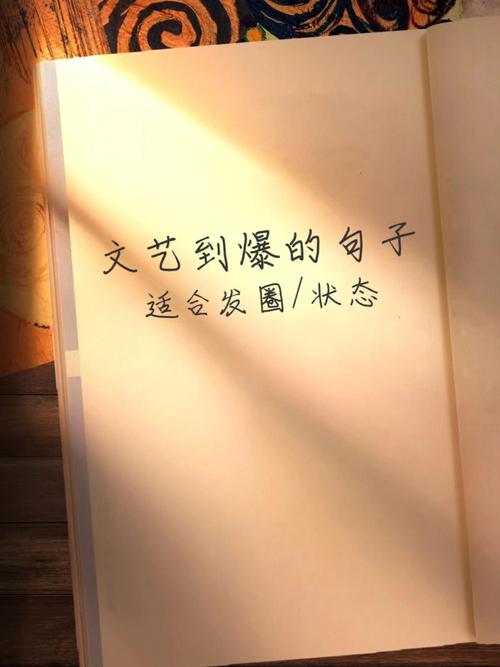 文艺到爆的句子
适合发圈/状态